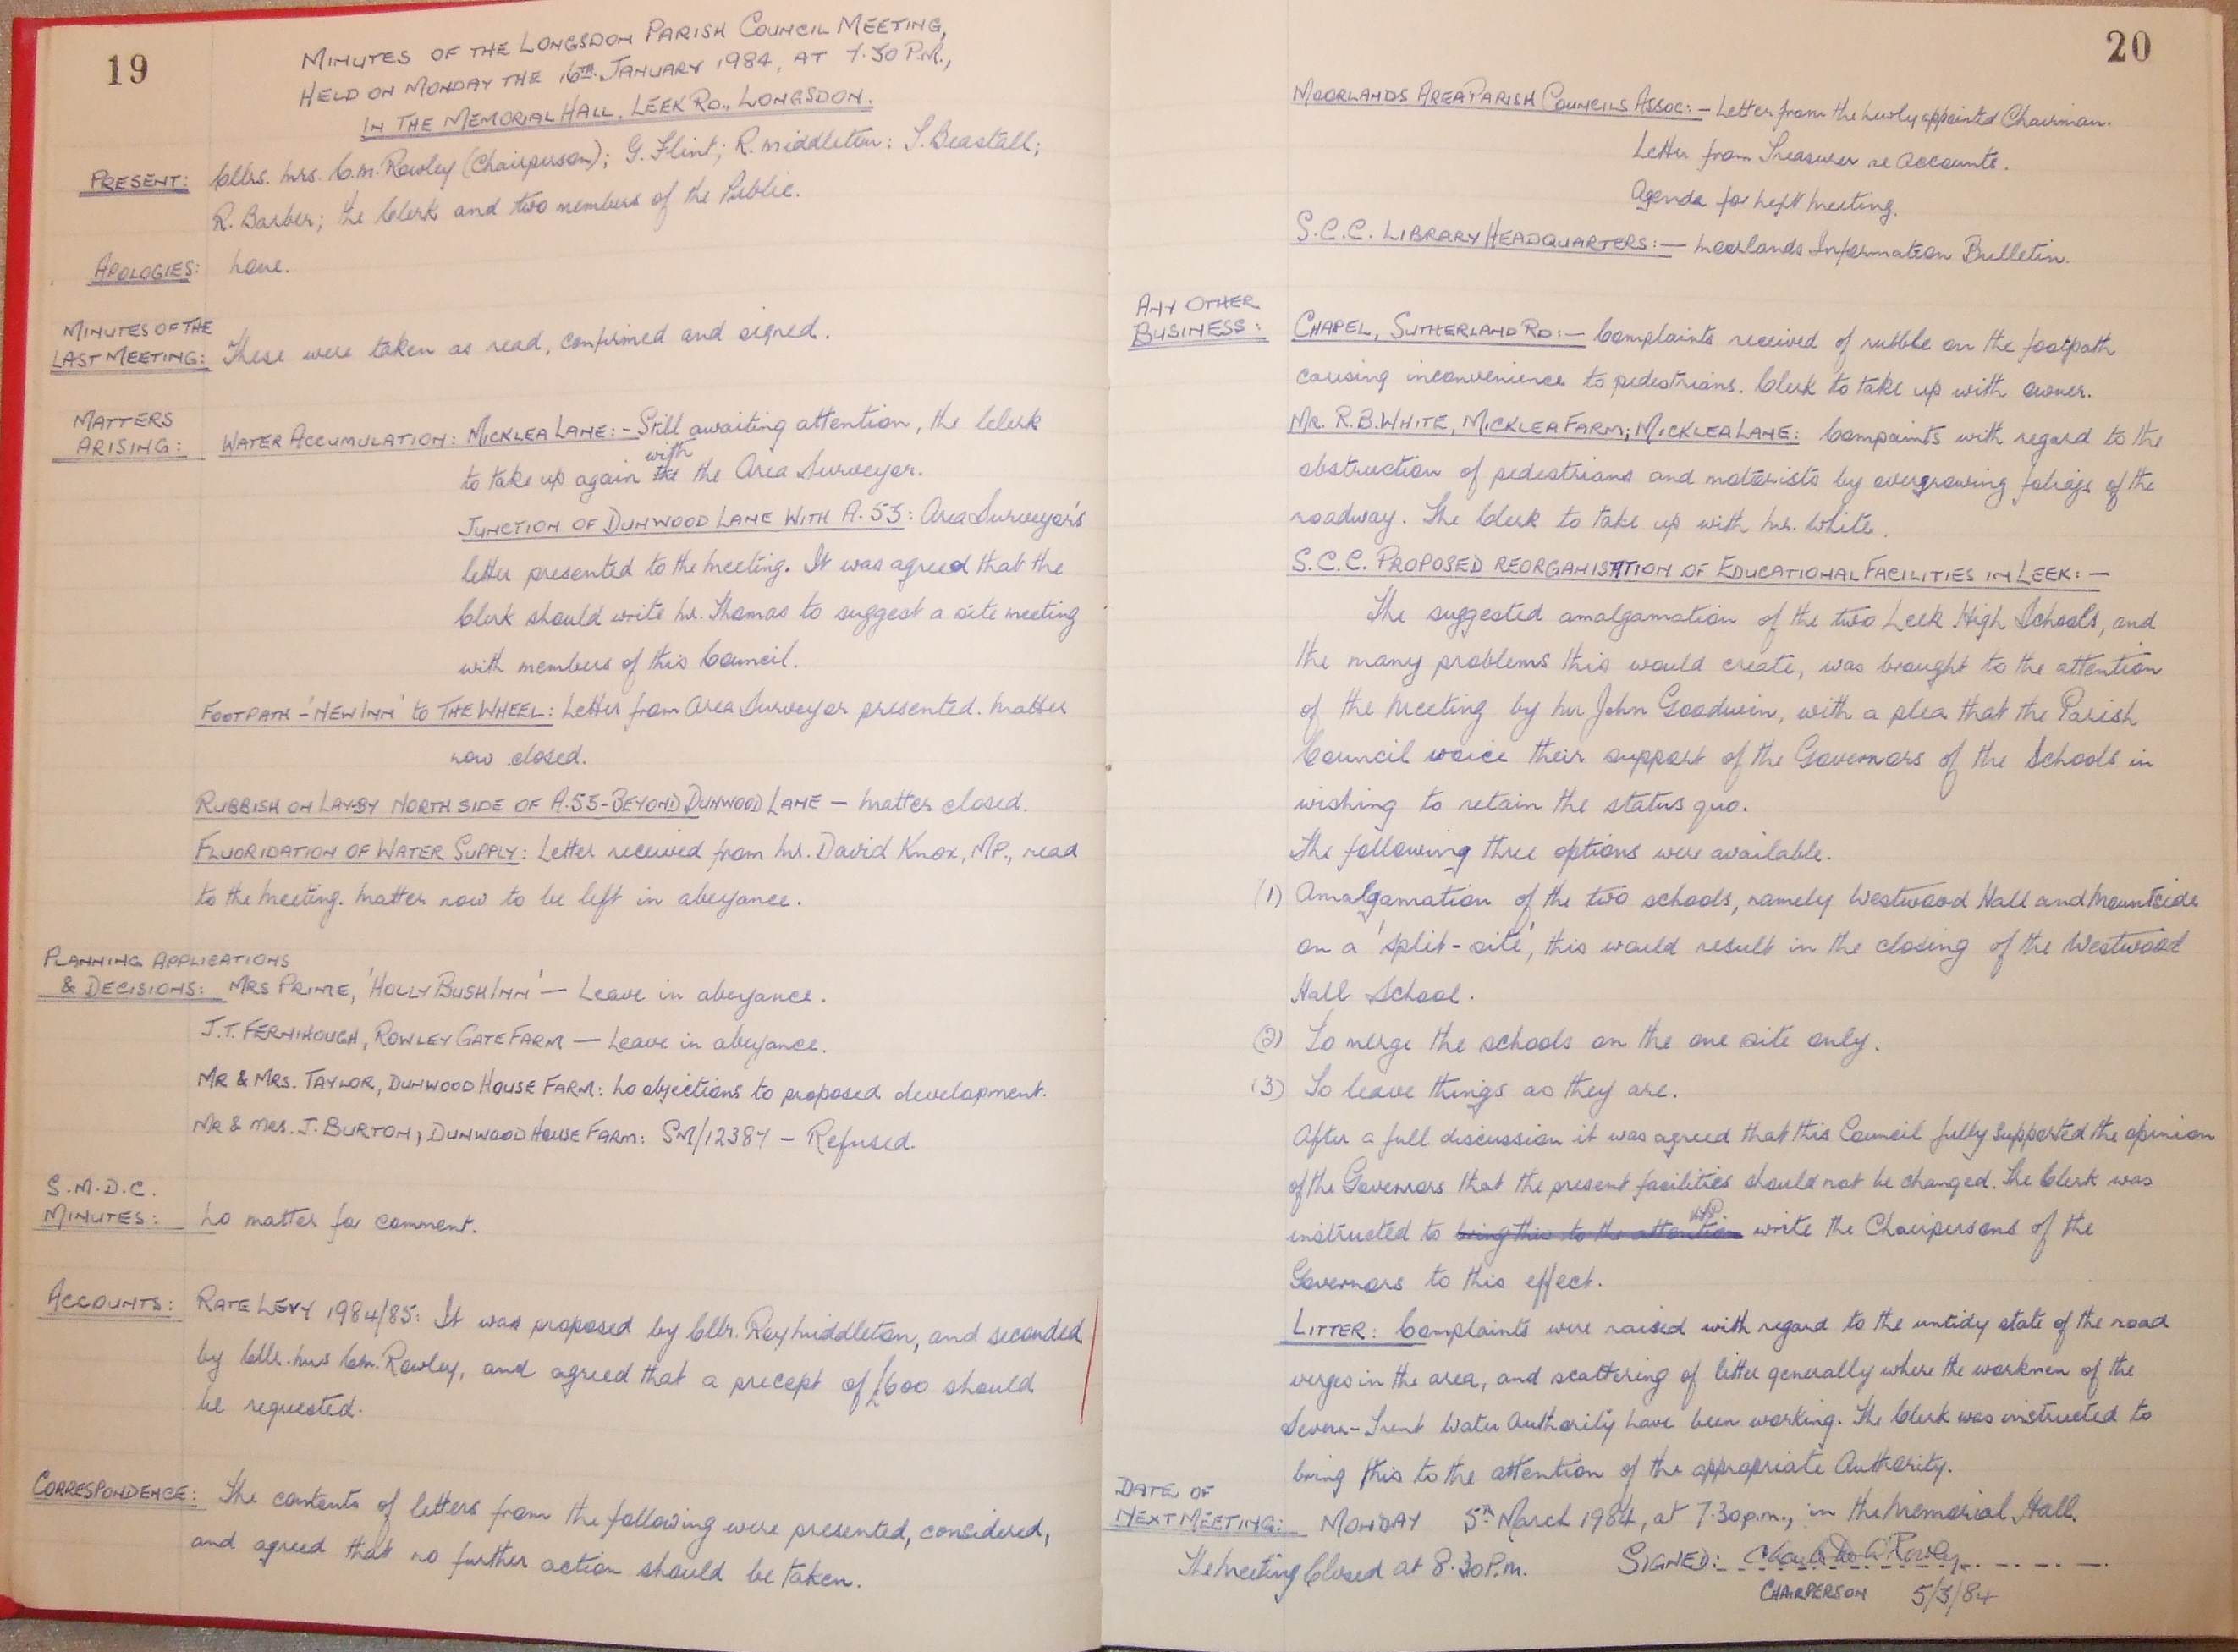 19
MINUTES OF THE LONGSDON PARISH COUNCIL MEETING,
HELD ON MONDAY THE 16TH. JANUARY 1984, AT 7.30 P.M.,
IN THE MEMORIAL HALL, LEEK RD., LONGSDON.
PRESENT: Cllrs. Mrs. C.M. Rowley (Chairperson); G. Flint; R. Middleton: T. Beastall;
R. Barber; the Clerk and two members of the Public.
APOLOGIES: None.
MINUTES OF THE
LAST MEETING: These were taken as read, confirmed and signed.
MATTERS
ARISING: WATER ACCUMULATION: MICKLEA LANE:- Still awaiting attention, the Clerk
with
to take up again the the Area Surveyor.
JUNCTION OF DUNWOOD LANE WITH A.53: Area Surveyor's
letter presented to the Meeting. It was agreed that the
Clerk should write Mr. Thomas to suggest a site meeting
with members of this Council.
FOOTPATH - 'NEW INN' to THE WHEEL: Letter from Area Surveyor presented. Matter
now closed.
RUBBISH ON LAY-BY NORTH SIDE OF A.53-BEYOND DUNWOOD LANE - Matter closed.
FLUORIDATION OF WATER SUPPLY: Letter received from Mr. David Knox, MP., read
to the Meeting. Matter now to be left in abeyance.
PLANNING APPLICATIONS
& DECISIONS: MRS PRIME, 'HOLLY BUSH INN' - Leave in abeyance.
J.T. FERNIHOUGH, ROWLEY GATE FARM - Leave in abeyance.
MR & MRS. TAYLOR, DUNWOOD HOUSE FARM: No objections to proposed development.
MR & MRS. J. BURTON, DUNWOOD HOUSE FARM: SM/12384 - Refused.
S.M.D.C.
MINUTES: No matter for comment.
ACCOUNTS: RATE LEVY 1984/85: It was proposed by Cllr. Roy Middleton, and seconded
by Cllr. Mrs C.M. Rowley, and agreed that a precept of £600 should
be requested.
CORRESPONDENCE: The contents of letters from the following were presented, considered,
and agreed that no further action should be taken.
20
MOORLANDS AREA PARISH COUNCILS ASSOC:- Letter from the newly appointed Chairman.
Letter from Treasurer re Accounts.
Agenda for next Meeting.
S.C.C. LIBRARY HEADQUARTERS:- Moorlands Information Bulletin.
ANY OTHER
BUSINESS: CHAPEL, SUTHERLAND RD:- Complaints received of rubble on the footpath
causing inconvenience to pedestrians. Clerk to take up with owner.
MR. R.B. WHITE, MICKLEA FARM; MICKLEA LANE: Compaints with regard to the
obstruction of pedestrians and motorists by overgrowing foliage of the
roadway. The Clerk to take up with Mr. White.
S.C.C. PROPOSED REORGANISATION OF EDUCATIONAL FACILITIES IN LEEK:-
The suggested amalgamation of the two Leek High Schools, and
the many problems this would create, was brought to the attention
of the Meeting by Mr John Goodwin, with a plea that the Parish
Council voice their support of the Governors of the Schools in
wishing to retain the status quo.
The following three options were available.
(1) Amalgamation of the two schools, namely Westwood Hall and Mountside
on a 'split-site', this would result in the closing of the Westwood
Hall School.
(2) To merge the schools on the one site only.
(3) To leave things as they are.
After a full discussion it was agreed that this Council fully supported the opinion
of the Governors that the present facilities should not be changed. The Clerk was
instructed to bring this to the attention write the Chairpersons of the
Governors to this effect.
LITTER: Complaints were raised with regard to the untidy state of the road
verges in the area, and scattering of litter generally where the workmen of the
Severn-Trent Water Authority have been working. The Clerk was instructed to
bring this to the attention of the appropriate Authority.
DATE OF
NEXT MEETING: MONDAY 5th March 1984, at 7.30p.m., in the Memorial Hall.
The Meeting Closed at 8.30P.m. SIGNED:
CHAIRPERSON 5/3/84